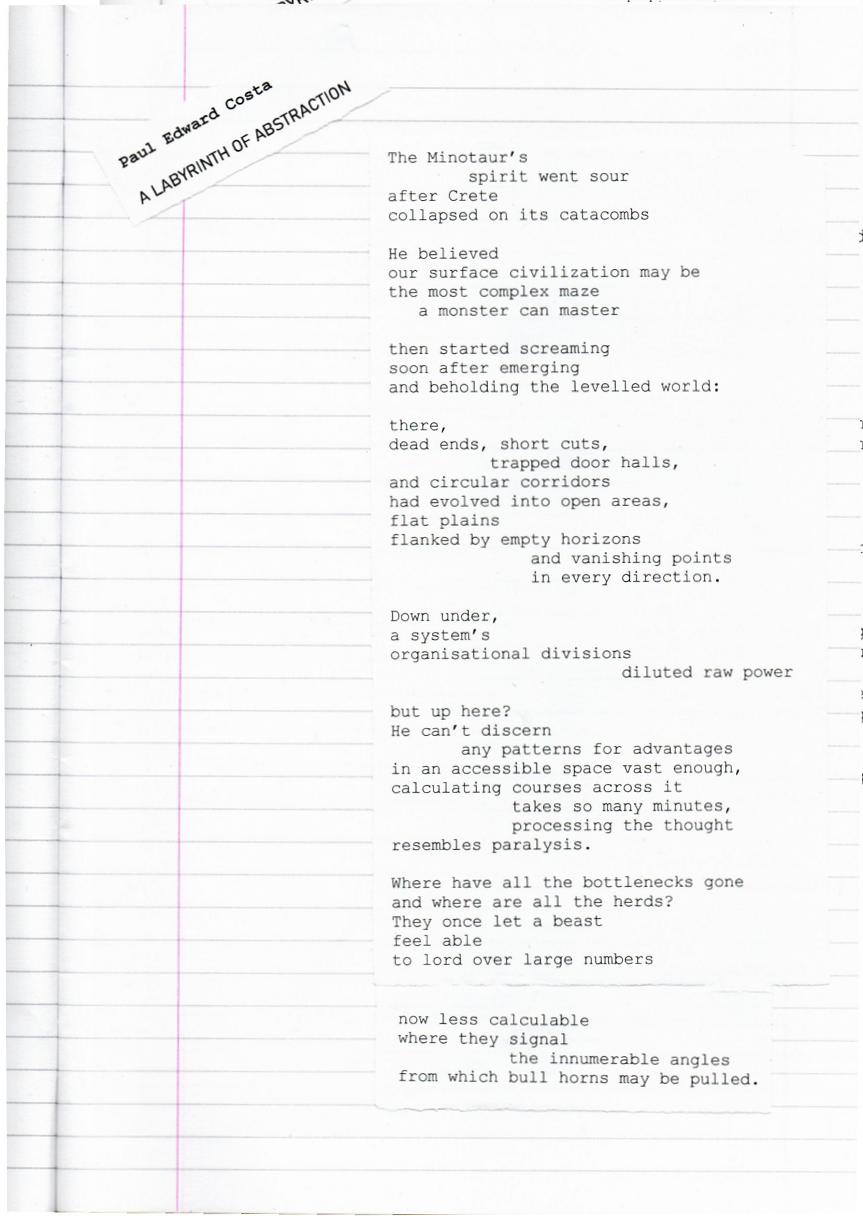 Paul Edward Costa
A LABYRINTH OF ABSTRACTION
The Minotaur's
spirit went sour
after Crete
collapsed on its catacombs
He believed
our surface civilization may be
the most complex maze
a monster can master
then started screaming
soon after emerging
and beholding the levelled world:
there,
dead ends, short cuts,
trapped door halls,
and circular corridors
had evolved into open areas,
flat plains
flanked by empty horizons
and vanishing points
in every direction.
Down under,
a system's
organisational divisions
diluted raw power
but up here?
He can't discern
any patterns for advantages
in an accessible space vast enough,
calculating courses across it
takes so many minutes,
processing the thought
resembles paralysis.
Where have all the bottlenecks gone
and where are all the herds?
They once let a beast
feel able
to lord over large numbers
now less calculable
where they signal
the innumerable angles
from which bull horns may be pulled.